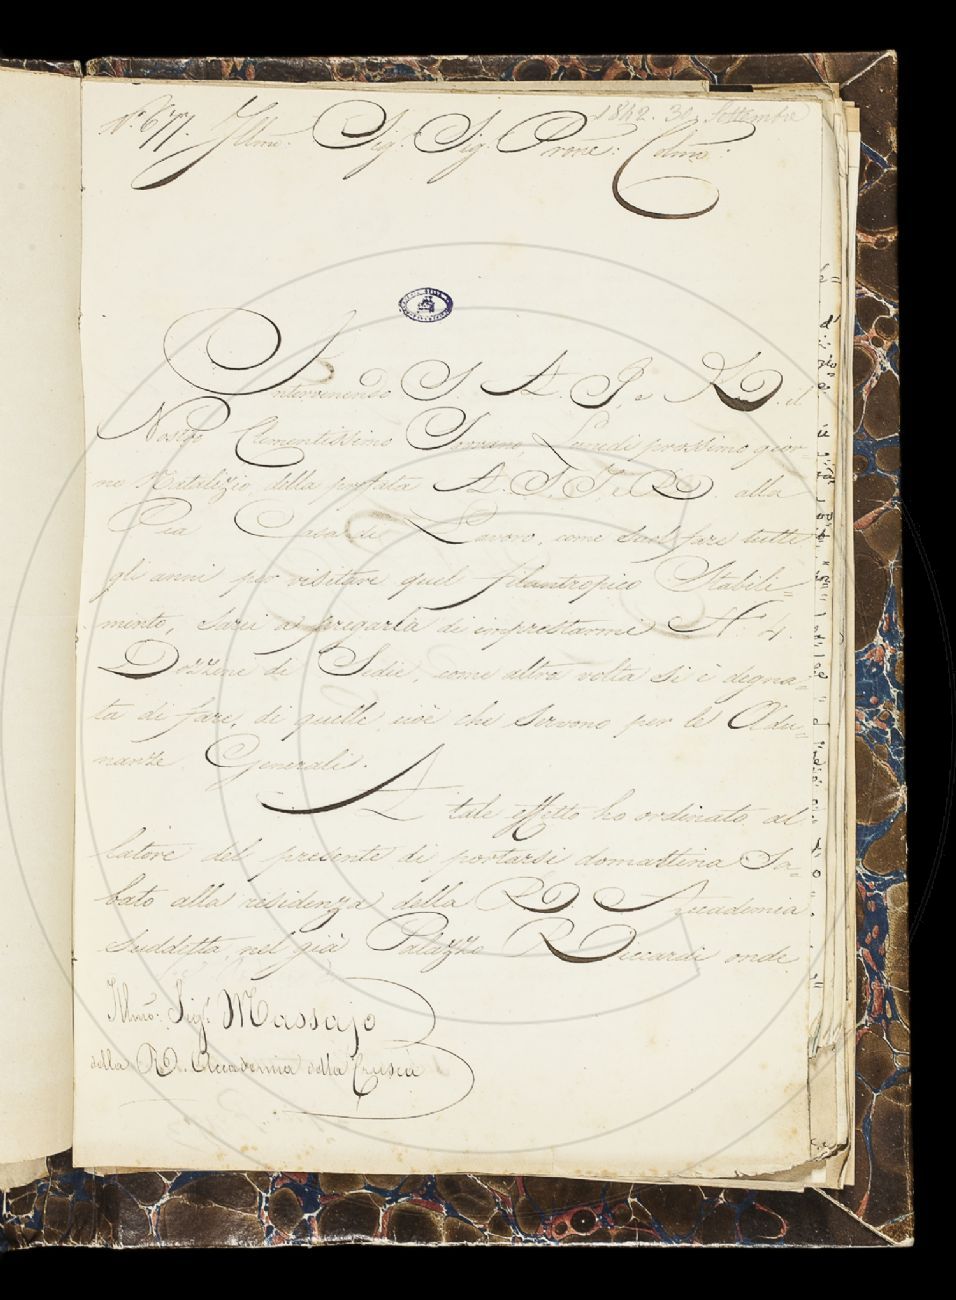 1842. 30 Settembre
N.° 677. Illmo: Sig. Sig. Prone: Colmo:
Intervenendo S. A. I. e R. il
Nostro Clementissimo Sovrano, Lunedì prossimo gior-
no Natalizio della prefata A. S. I. e R. alla
Pia Casa di Lavoro, come suol fare tutti
gli anni per visitare quel filantropico Stabili=
mento, sarei a pregarla di imprestarmi N.° 4.
Dozzine di Sedie, come altra volta si è degna=
ta di fare, di quelle cioè che servono per le Adu=
nanze Generali.
A tale effetto ho ordinato al
latore del presente di portarsi domattina Sa=
bato alla residenza della R. Accademia
suddetta, nel già Palazzo Riccardi onde
Illmo: Sig.r Massajo
della R. Accademia della Crusca